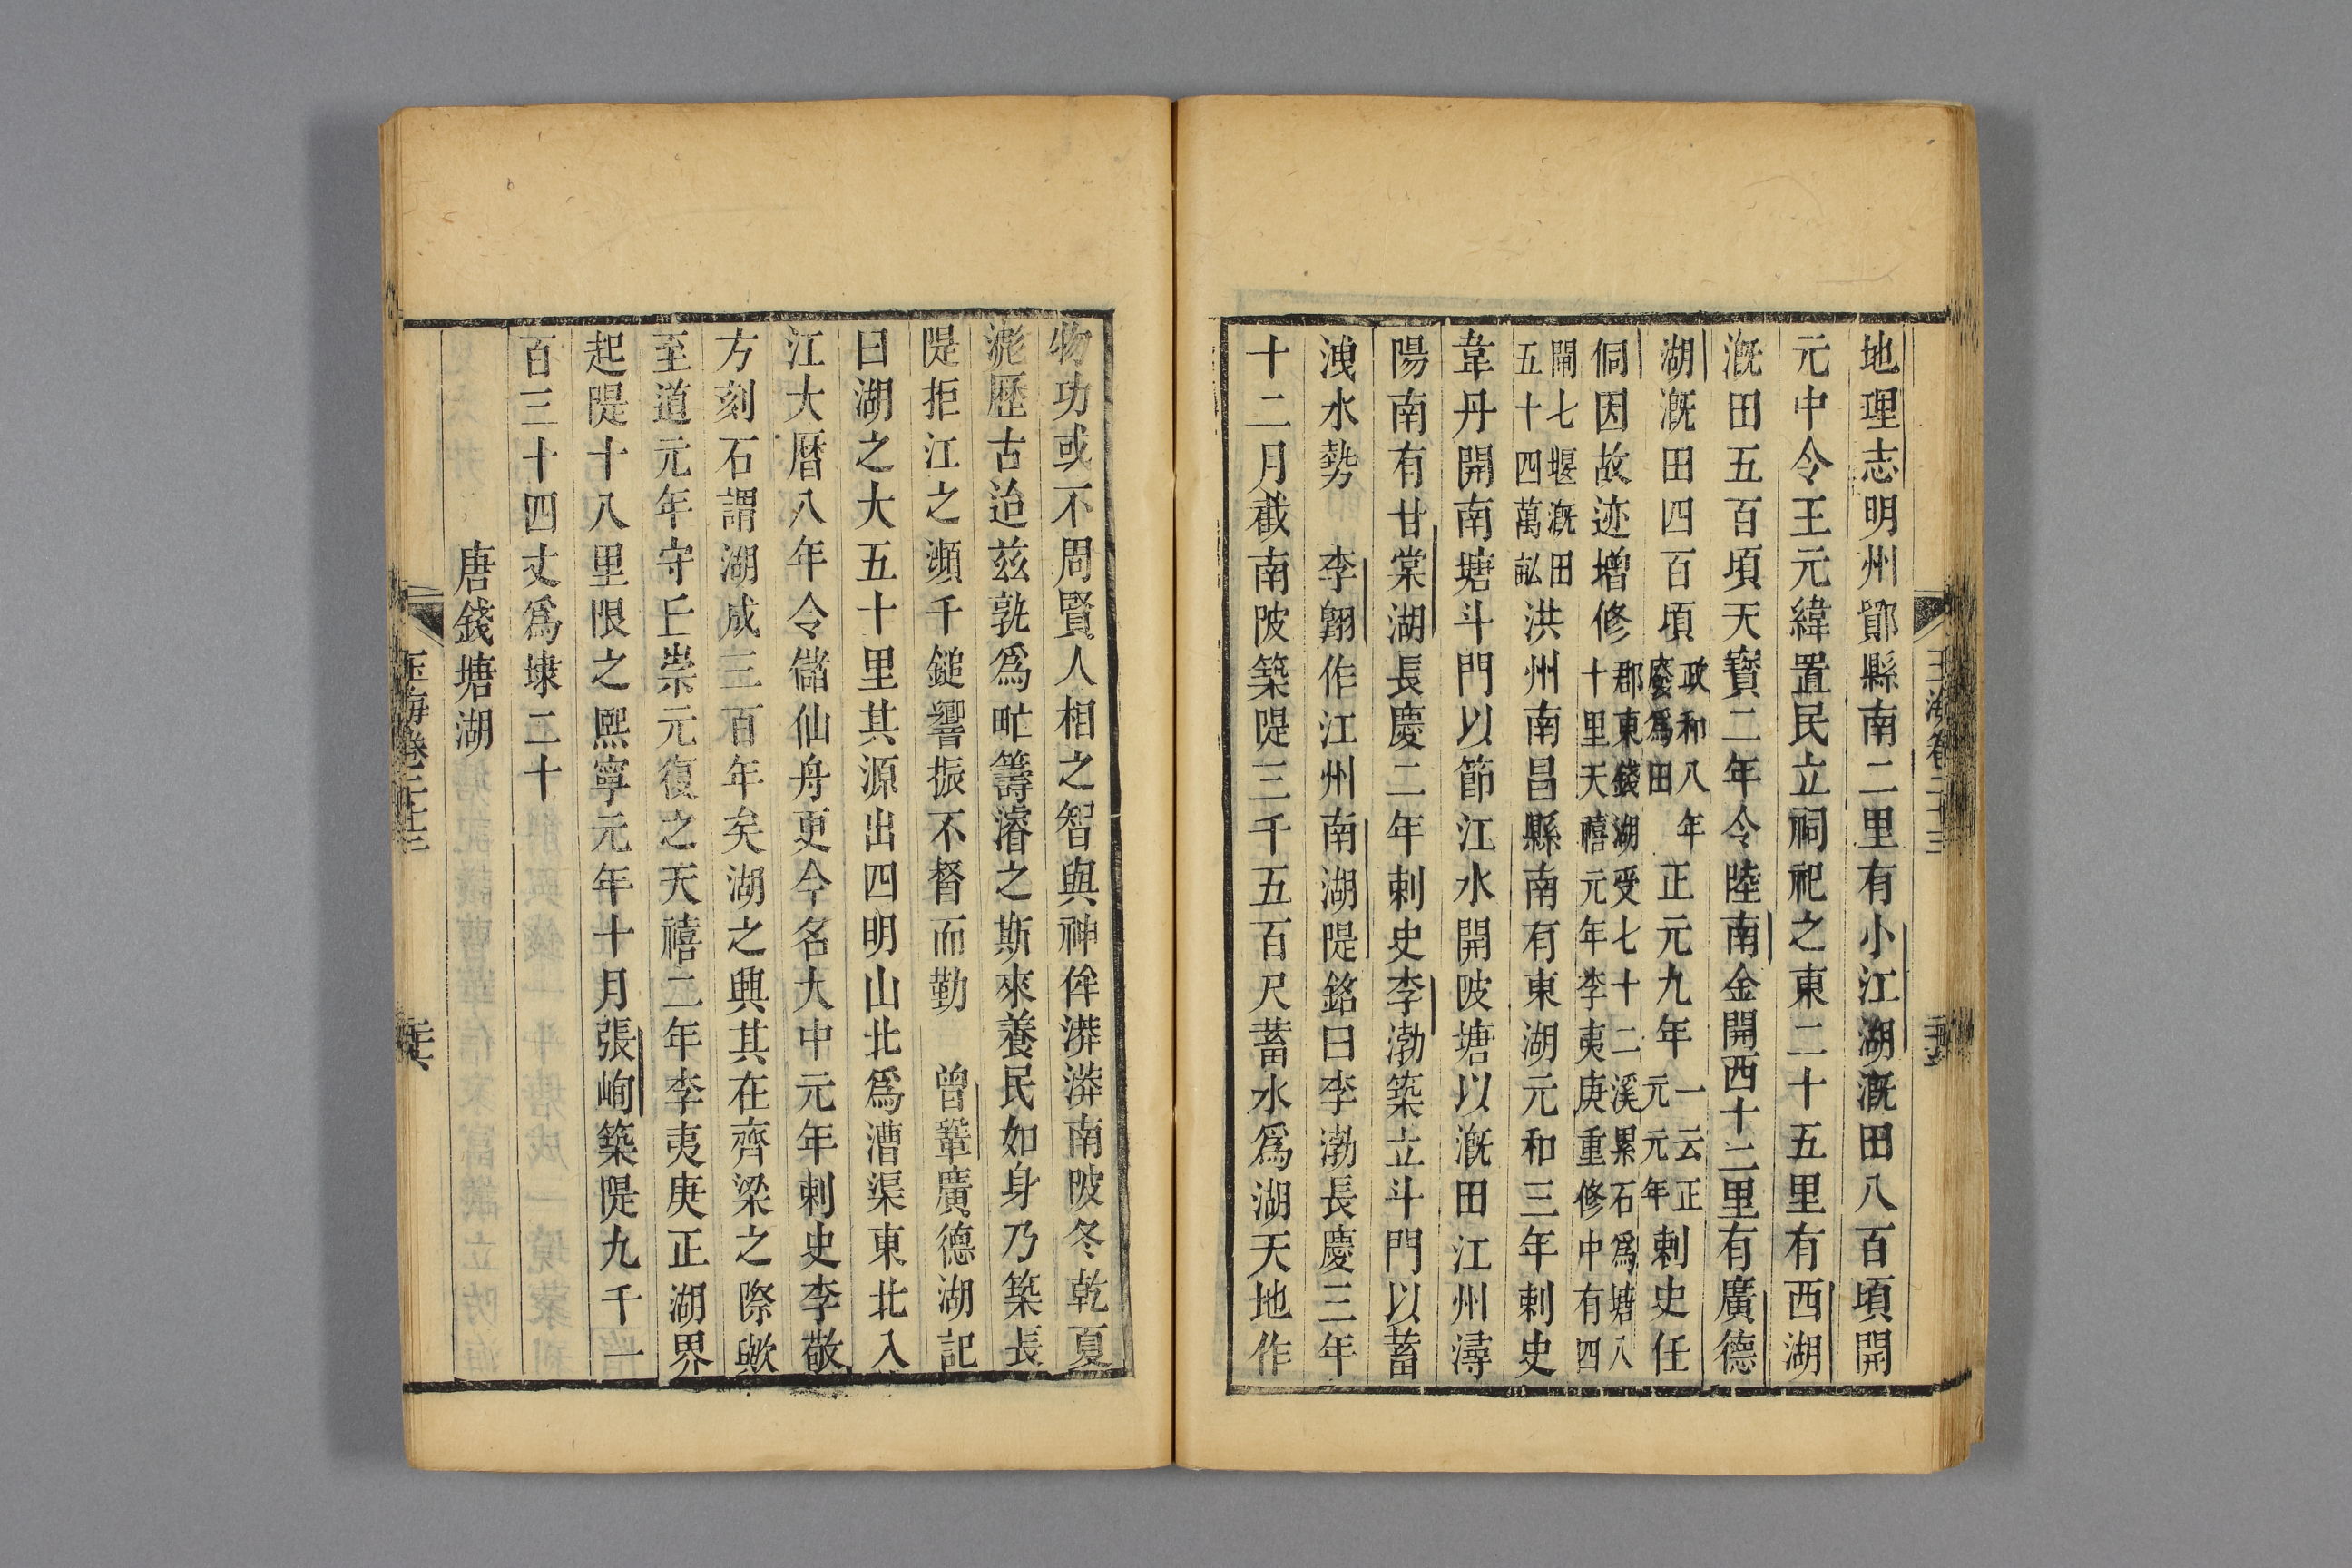 地理志明州鄮縣南二里有小江湖漑田八百頃開
元中令王元緯置民立祠祀之東二十五里有西湖
漑田五百頃天寶二年令陸南金開西十二里有廣德
湖漑田四百頃政和八年廢爲田正元九年一云正元元年刺史任
侗因故迹增修郡東錢湖受七十二溪累石爲塘八十里天禧元年李夷庚重修中有四
閘七堰漑田五十四萬畝洪州南昌縣南有東湖元和三年刺史
韋丹開南塘斗門以節江水開陂塘以漑田江州潯
陽南有甘棠湖長慶二年刺史李渤築立斗門以蓄
洩水勢 李翱作江州南湖隄銘曰李渤長慶三年
十二月截南陂築隄三千五百尺蓄水爲湖天地作
玉海卷二十三
物功或不周賢人相之智與神侔漭漭南陂冬乾夏
滮歷古迨茲孰爲甿籌濬之斯來養民如身乃築長
隄拒江之瀕千鎚響振不督而勤 曾鞏廣德湖記
曰湖之大五十里其源出四明山北爲漕渠東北入
江大曆八年令儲仙舟更今名大中元年刺史李敬
方刻石謂湖成三百年矣湖之興其在齊梁之際歟
至道元年守丘崇元復之天禧二年李夷庚正湖界
起隄十八里限之熙寧元年十月張峋築隄九千一
百三十四丈爲埭二十
唐錢塘湖
玉海卷二十三